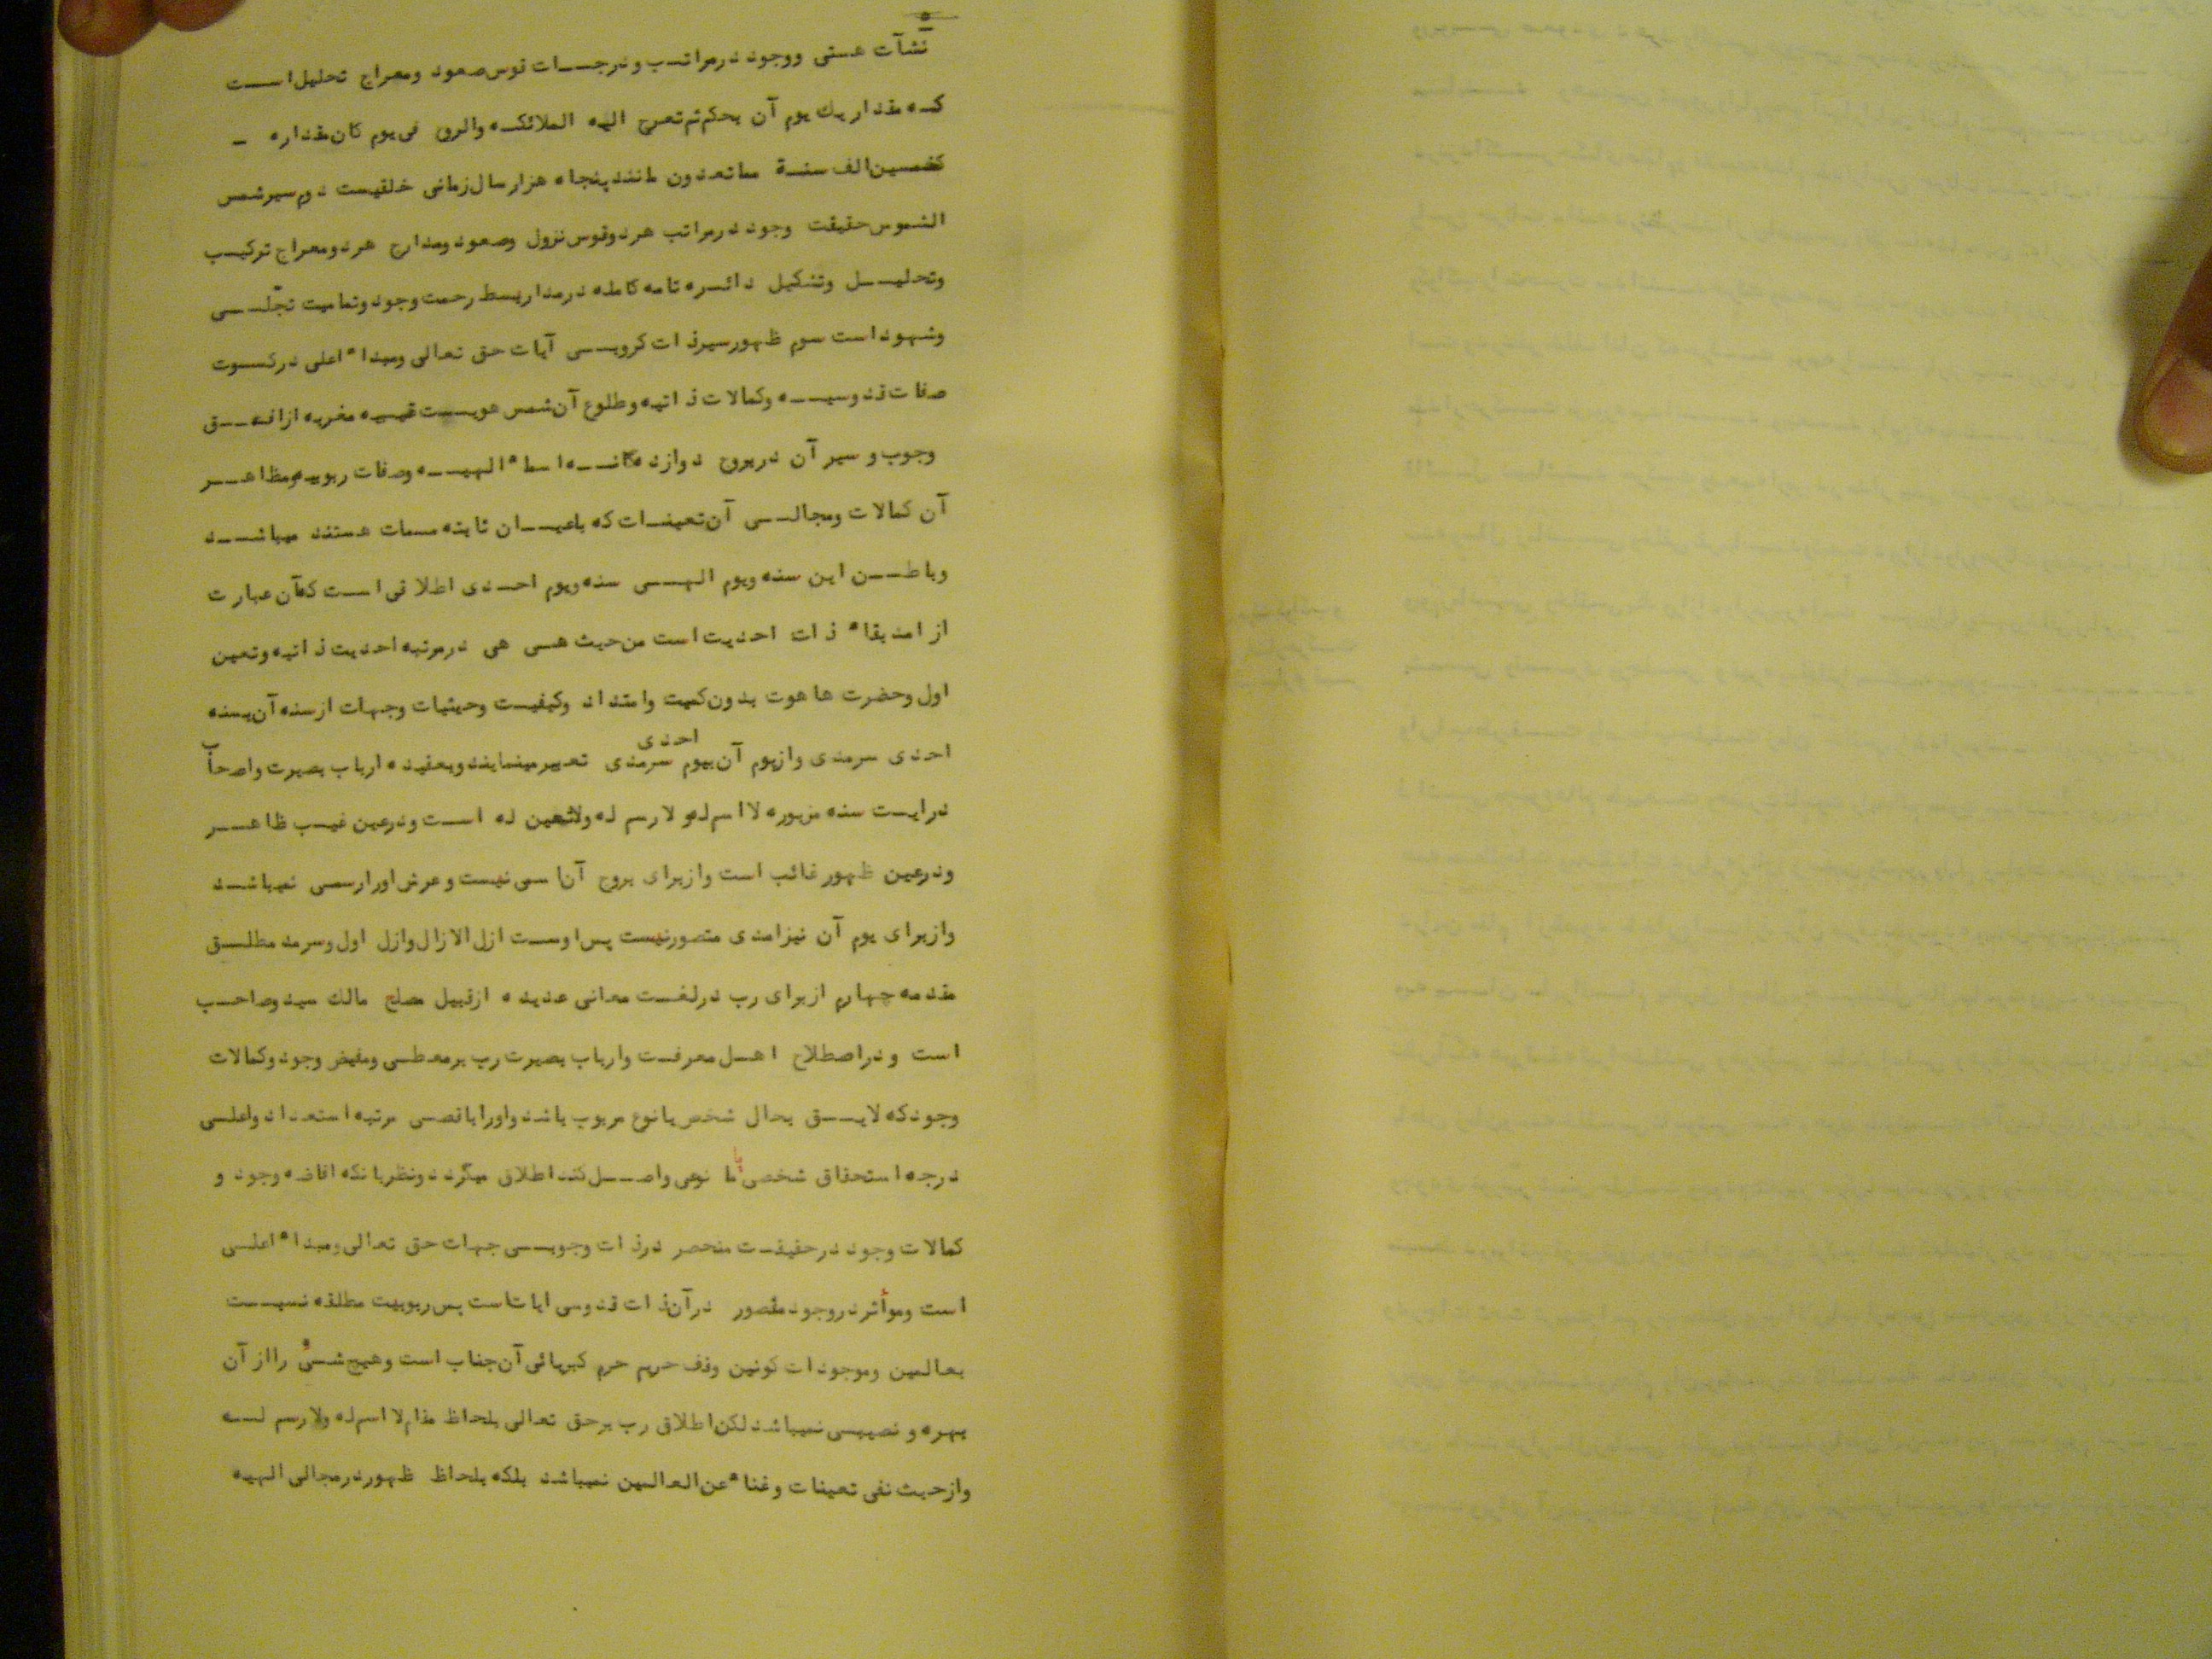 ۵
نشآت هستی ووجود درمراتب ودرجات قوس صعود ومعراج تحلیل است
که مقدار یك یوم آن بحکم ثم تعرج الیه الملائکه والروح فی یوم کان مقداره ـ
کخمسین الف سنة مما تعدون مانند پنجاه هزار سال زمانی خلقیست دوم سیر شمس
الشموس حقیقت وجود درمراتب هردوقوس نزول وصعود ومدارج هردو معراج ترکیب
وتحلیل وتشکیل دائره تامه کامله درمدار بسط رحمت وجود وتمامیت تجلّی
وشهود است سوم ظهور سیر ذات کروبی آیات حق تعالی ومبداء اعلی درکسوت
صفات قدوسیه وکمالات ذاتیه وطلوع آن شمس هویت غیبیه مغربه از افق
وجوب و سیر آن دربروج دوازده گانه اسماء الهیه وصفات ربوبیه ومظاهر
آن کمالات ومجالی آن تعینات که باعیان ثابته مسمات هستند میباشد
وباطن این سنه ویوم الهی سنه ویوم احدی اطلاقی است که آن عبارت
از امد بقاء ذات احدیت است من حیث هی هی درمرتبه احدیت ذاتیه وتعین
اول وحضرت هاهوت بدون کمیت وامتداد وکیفیت وحیثیات وجهات ازسنه آن بسنه
احدی سرمدی وازیوم آن بیوم احدی سرمدی تعبیر مینمایند وبعقیده ارباب بصیرت واصحاب
درایت سنه مزبوره لا اسم له و لا رسم له ولا تعین له است ودرعین غیب ظاهر
ودرعین ظهور غائب است وازبرای بروج آن اسمی نیست و عرش اورا رسمی نمیباشد
وازبرای یوم آن نیز امدی متصور نیست پس اوست ازل الازال وازل اول وسرمد مطلق
مقدمه چهارم ازبرای رب درلغت معانی عدیده ازقبیل مصلح مالك سید وصاحب
است و دراصطلاح اهل معرفت وارباب بصیرت رب برمعطی ومفیض وجود وکمالات
وجود که لایق بحال شخص یا نوع مربوب باشد واورا باقصی مرتبه استعداد واعلی
درجه استحقاق شخصی یا نوعی واصل کند اطلاق میگردد ونظر بانکه افاضه وجود و
کمالات وجود درحقیقت منحصر درذات وجوبی جهات حق تعالی ومبداء اعلی
است وموأثر دروجود مقصور درآن ذات قدوسی ایات است پس ربوبیت مطلقه نسبت
بعالمین وموجودات کونین وقف حریم حرم کبریائی آن جناب است وهیچ شیئ را از آن
بهره و نصیبی نمیباشد لکن اطلاق رب برحق تعالی بلحاظ مقام لا اسم له ولا رسم له
وازحیث نفی تعینات وغناء عن العالمین نمیباشد بلکه بلحاظ ظهور درمجالی الهیه